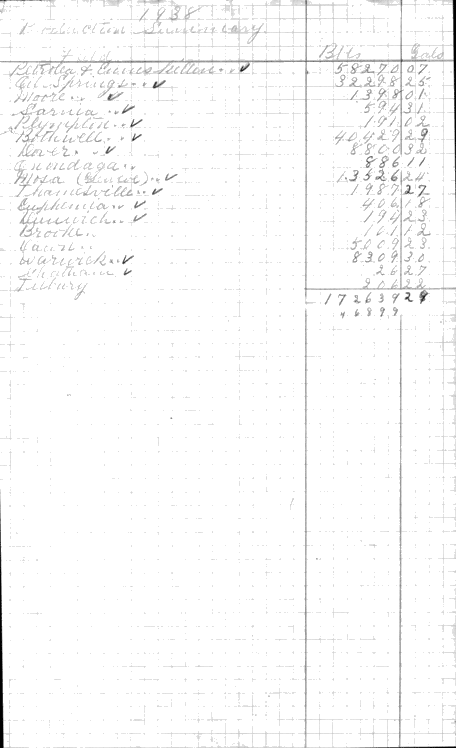 1938
Production Summary
Field Blls Gals
Petrolia & Enniskillen .. ✓ 58270 07
Oil Springs .. ✓ 32298 25
Moore .. ✓ 1398 01
Sarnia .. ✓ 594 31
Plympton .. ✓ 191 02
Bothwell .. ✓ 40429 29
Dover .. ✓ 8800 32
Onondaga .. 886 11
Mosa (Glencoe) .. ✓ 13526 24
Thamesville .. ✓ 1987 27
Euphemia .. ✓ 406 18
Dunwich .. ✓ 194 23
Brooke .. 101 12
Dawn .. 5009 23
Warwick .. ✓ 8309 30
Chatham ✓ 26 27
Tilbury 206 22
172639 29
46899